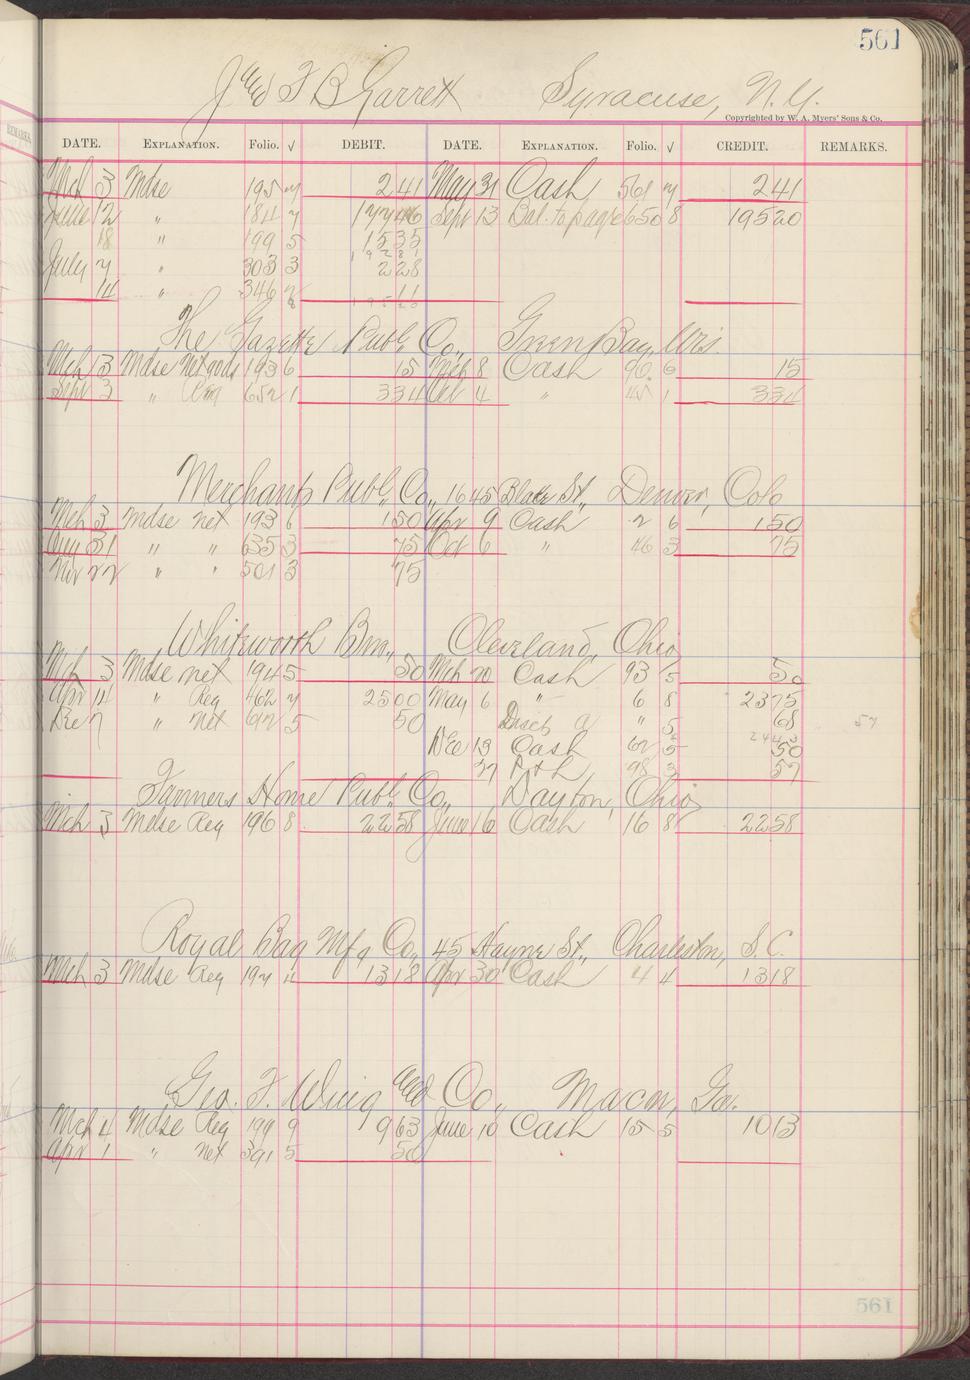 561
J & F B Garrett Syracuse, N.Y.
Copyrighted by W. A. Myers' Sons & Co.
DATE. EXPLANATION. Folio. √ DEBIT. DATE. EXPLANATION. Folio. √ CREDIT. REMARKS.
Mch 3 Mdse 195 7 2 41 May 31 Cash 561 7 2 41
June 12 " 184 7 177 46 Sept 13 Bal. to page 650 8 195 20
18 " 199 5 15 35
July 7 " 303 3 2 28
14 " 346 2 11
The Gazette Publ. Co., Green Bay, Wis.
Mch 13 Mdse Net gods 193 6 15 Mch 8 Cash 90 6 15
Sept 3 " 652 1 3 34 Oct 4 " 45 1 3 34
Merchants Publ. Co., 1645 Blake St., Denver, Colo
Mch 3 Mdse net 193 6 1 50 Apr 9 Cash 2 6 1 50
Aug 31 " " 635 3 75 Oct 6 " 46 3 75
Nov 22 " " 501 3 75
Whitworth Bros., Cleveland, Ohio
Mch 3 Mdse net 194 5 50 Mch 20 Cash 93 5 50
Apr 14 " Reg 462 7 25 00 May 6 " 6 8 23 75
Dec 7 " Net 692 5 50 Disch " 5 68
57
Dec 13 Cash 62 5 50
27 98 3 57
Farmers Home Publ. Co., Dayton, Ohio
Mch 3 Mdse Reg 196 8 22 58 June 16 Cash 16 8 22 58
Royal Bag Mfg Co., 45 Hayne St., Charleston, S.C.
Mch 3 Mdse Reg 197 4 13 18 Apr 30 Cash 4 4 13 18
Geo. F. Wing and Co., Macon, Ga.
Mch 4 Mdse Reg 199 9 9 63 June 10 Cash 15 5 10 13
Apr 1 " Net 391 5 50
561